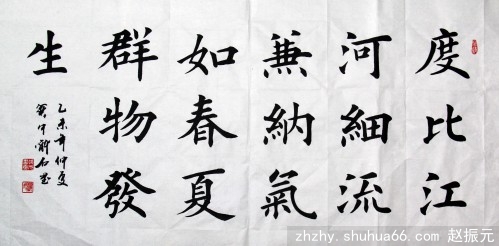 度比江
河細流
兼納氣
如春夏
群物發
生
乙未年仲夏
zhzhy.shuhua66.com 赵振元